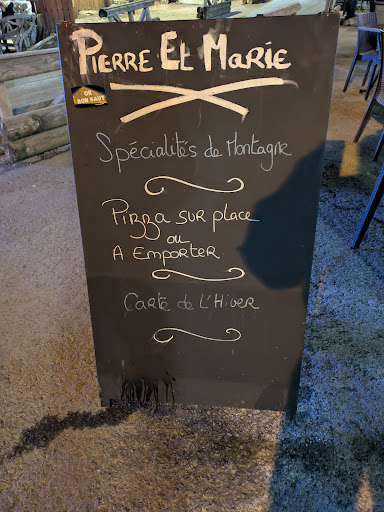 Pierre Et Marie
OK
BON HAUT
Spécialités de Montagne
Pizza sur place
ou
A Emporter
Carte de L'Hiver